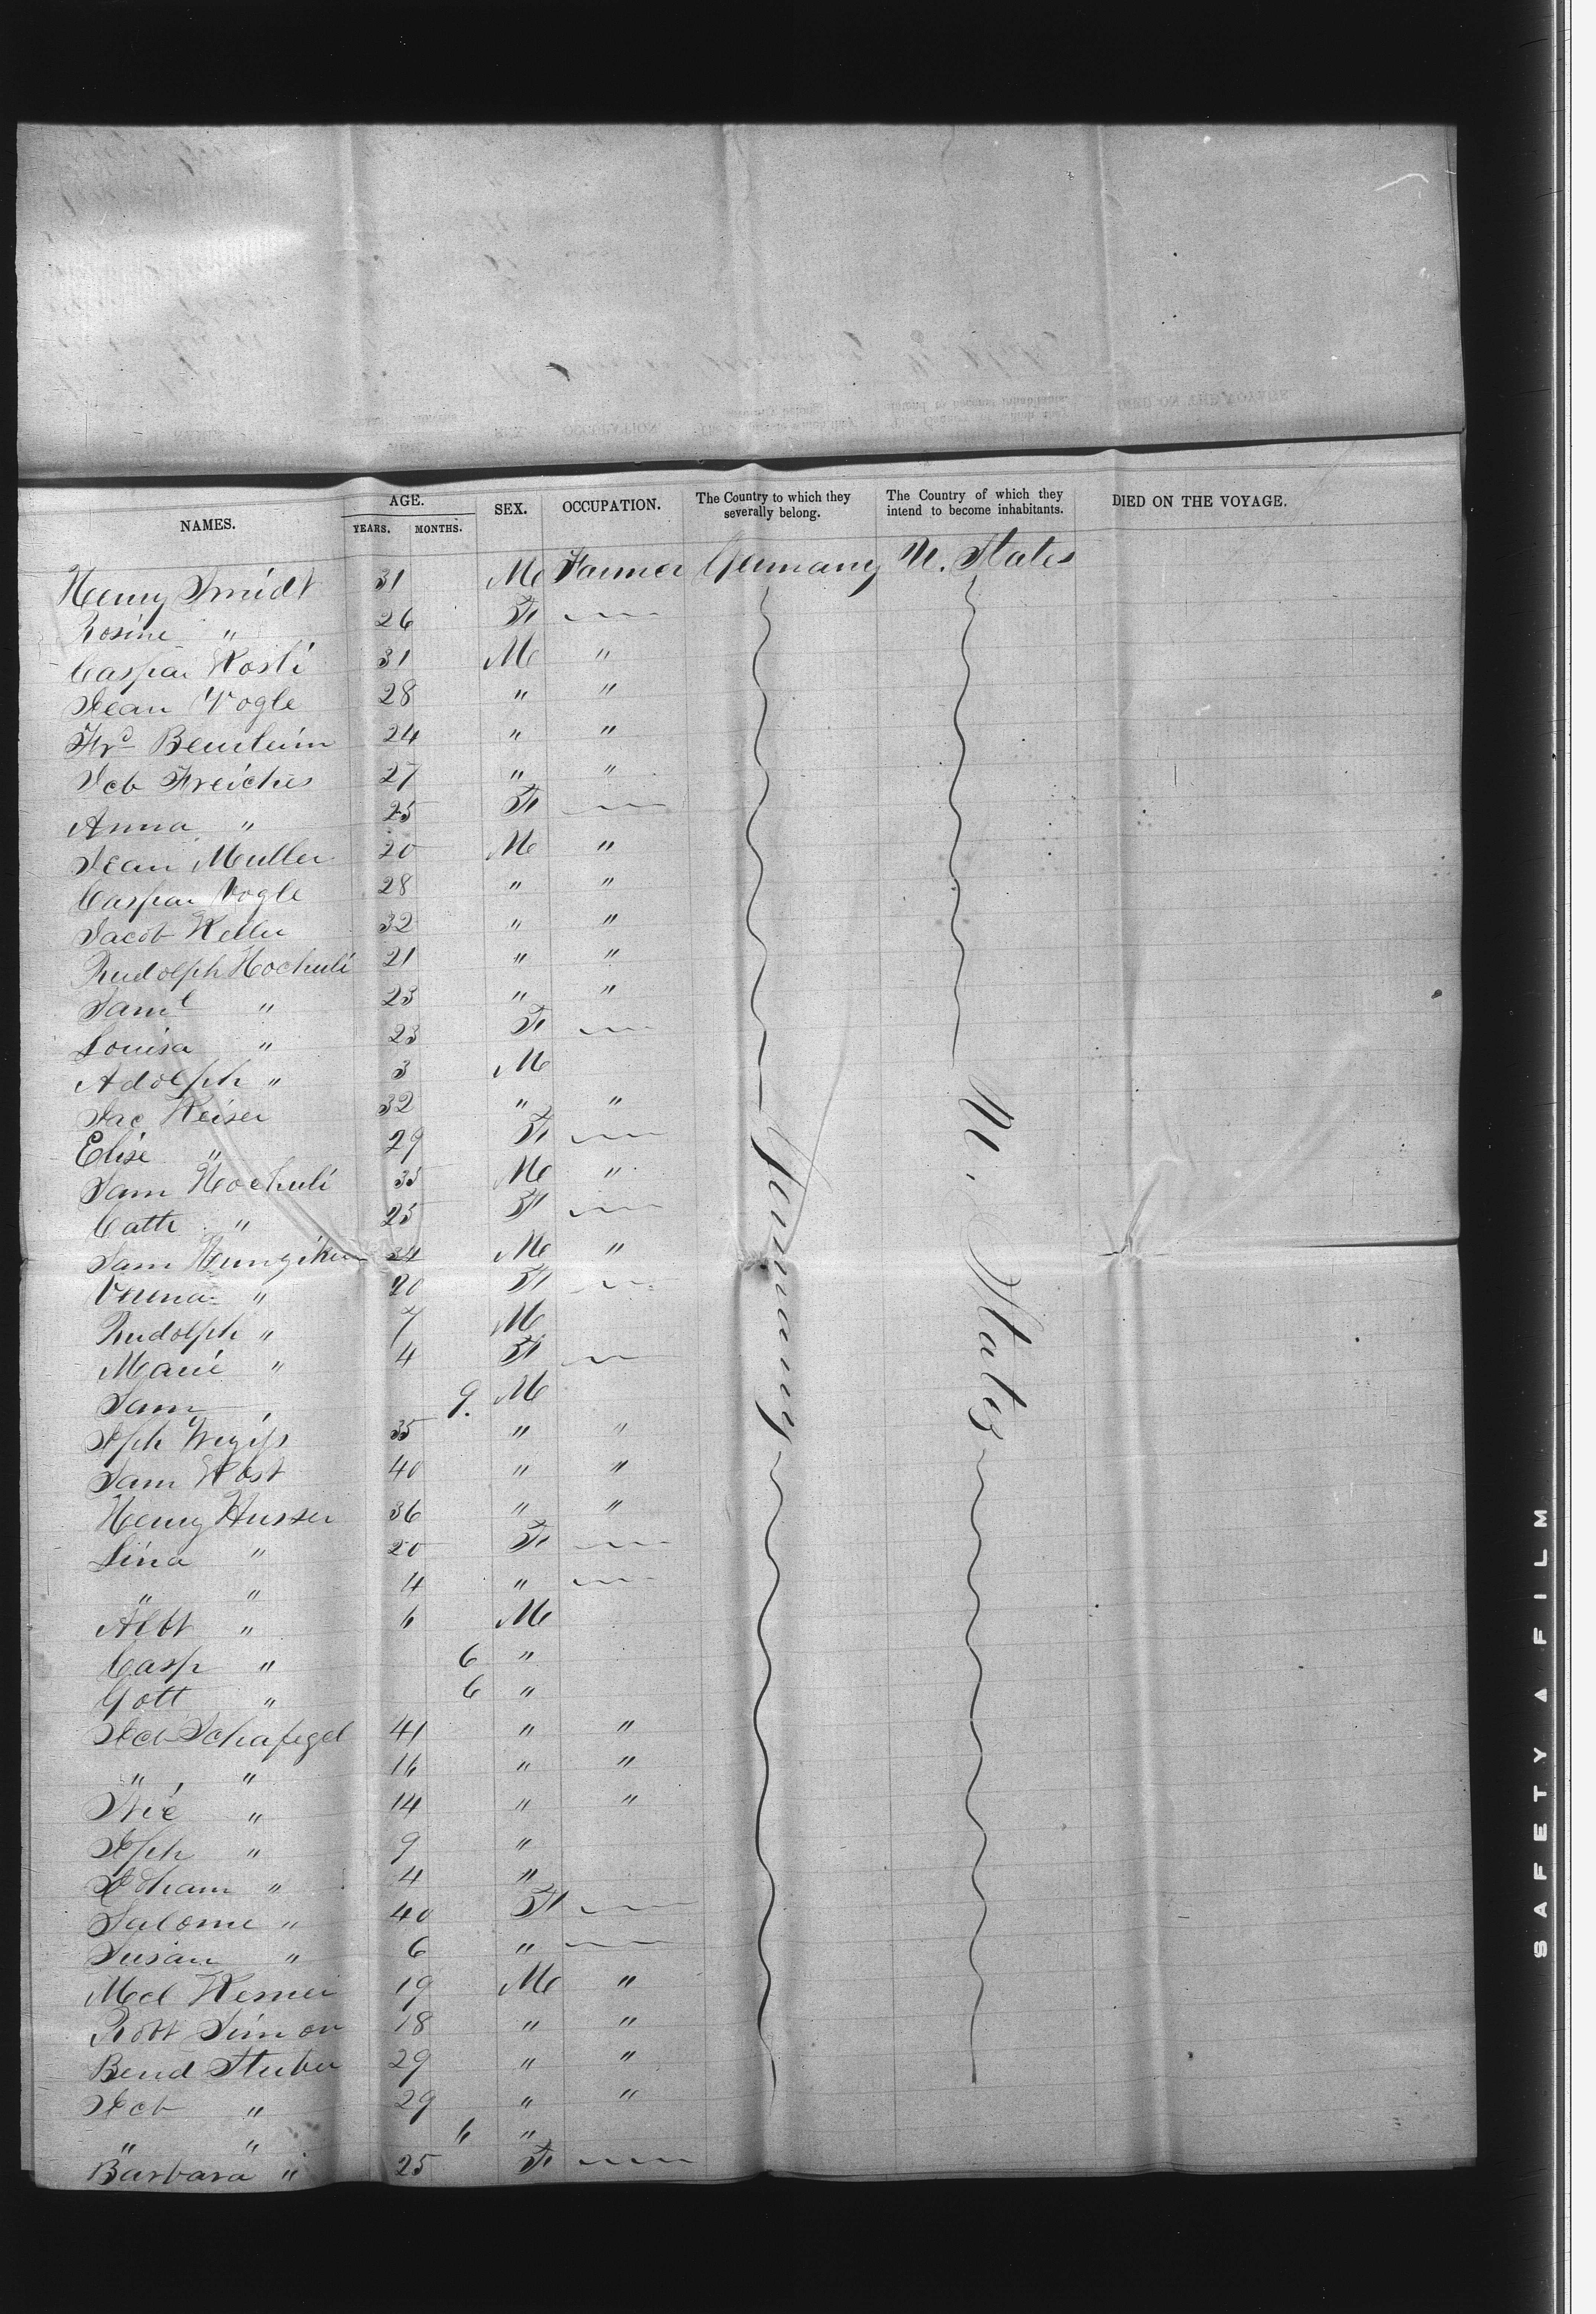 NAMES. AGE. YEARS. MONTHS. SEX. OCCUPATION. The Country to which they severally belong. The Country of which they intend to become inhabitants. DIED ON THE VOYAGE.
Henry Smidt 31 M Farmer Germany U. States
Rosine " 26 F
Caspar Kosli 31 M "
Jean Vogle 28 " "
Frd 24 " "
Jcb Freiches 27 " "
Anna " 25 F
Jean Muller 20 M "
Caspar Vogle 28 " "
Jacob Keller 32 " "
Rudolph Hochuli 21 " "
Saml " 23 " "
Louisa " 23 F
Adolph " 3 M
Jac Keiser 32 " "
Elise " 29 F
Sam Hochuli 35 M "
Cath " 25 F
Sam 34 M "
Verena " 20 F
Rudolph " 7 M
Marie " 4 F
Sam 9. M
Jph 35 " "
Sam Kost 40 " "
Henry Husser 36 " "
Lina " 20 F
" " 4 "
Albt " 6 M
Casp " 6 "
Gott " 6 "
Jcb Schafegel 41 " "
" " 16 " "
" 14 " "
Jph " 9 "
" 4 "
Salome " 40 F
Susan " 6 "
19 M "
Robt Simon 18 " "
Bend Stuber 29 " "
Jcb " 29 " "
" " 6 "
Barbara " 25 F
Germany
U. States
SAFETY A FILM